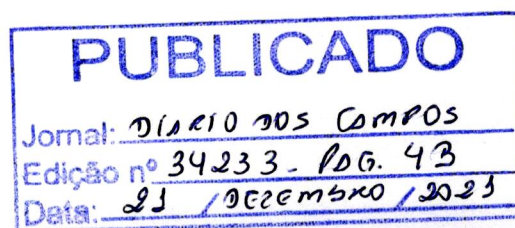 PUBLICADO
Jornal: DIÁRIO DOS CAMPOS
Edição nº 34233 - PÁG. 4B
Data: 21 / DEZEMBRO / 2021